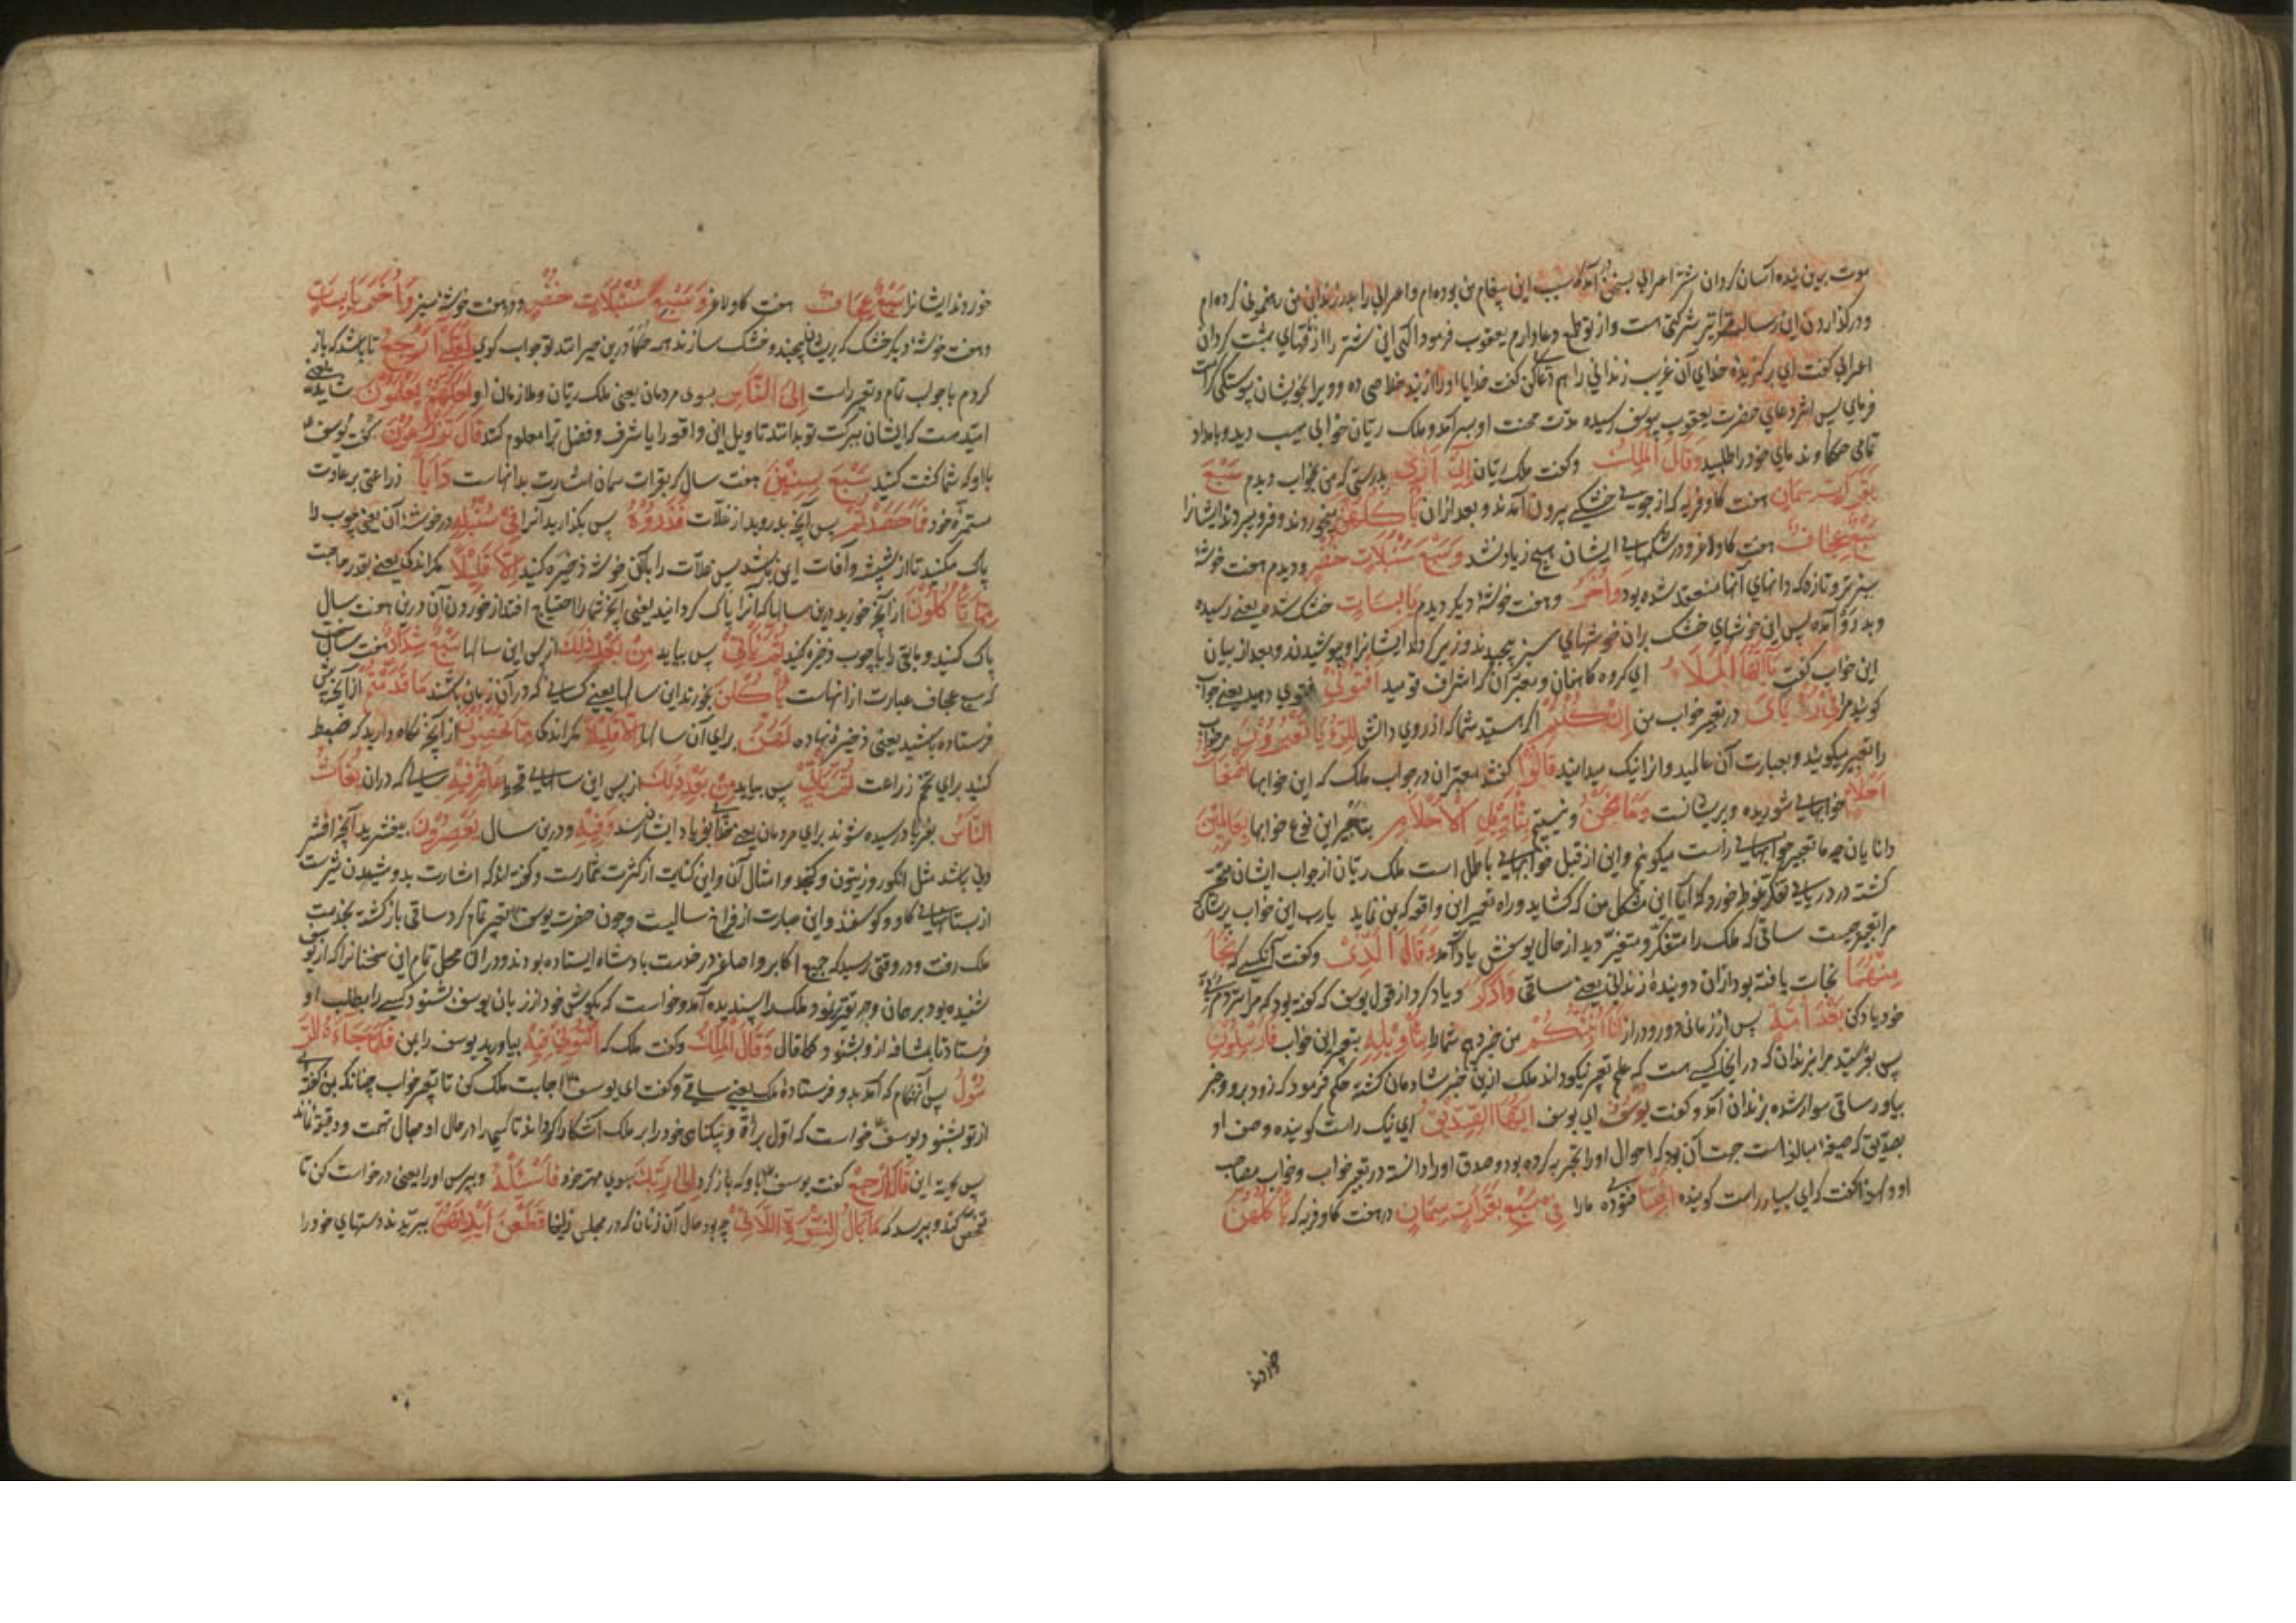 موت برین بنده آسان کردان شتر اعرابی بسخن درآمد که سبب این پیغام من بوده‌ام و اعرابی را بدر زندان من رهنمونی کرده‌ام
و در گذاردن این رسالت مرا نیز شرکتی هست و از تو طمع دعا دارم یعقوب فرمود الهی این شتر را از ناقهای بهشت کردان
اعرابی کفت ای برکزیدهٔ خدای آن غریب زندانی را هم دعا کن کفت خدایا او را از بند خلاصی ده و ویرا بخویشان پیوستکی کرامت
فرمای پس اثر دعای حضرت یعقوب بیوسف رسیده مدت محنت او بسر آمد و ملک ریان خوابی مهیب دید و بامداد
تمامی حکما و ندمای خود را طلبید وَقَالَ الْمَلِكُ و کفت ملک ریان اِنِّي اَرٰی بدرستی که من بخواب دیدم سَبْعَ
بَقَرَاتٍ سِمَانٍ هفت کاو فربه که از جویی خشک بیرون آمدند و بعد از آن يَأْكُلُهُنَّ بخوردند و فرو بردند ایشانرا
سَبْعٌ عِجَافٌ هفت کاو لاغر و در شکمهای ایشان هیچ زیاد نشد وَسَبْعَ سُنْبُلَاتٍ خُضْرٍ و دیدم هفت خوشهٔ
سبز تر و تازه که دانهای آنها منعقد شده بود وَاُخَرَ و هفت خوشهٔ دیکر دیدم يَابِسَاتٍ خشک شده یعنی رسیده
و بدرو آمده پس این خوشهای خشک بران خوشهای سبز پیچیدند و زیر کردند ایشانرا و پوشیدند و بعد از بیان
این خواب کفت يَا اَيُّهَا الْمَلَأُ ای کروه کاهنان و معبران که اشراف قومید اَفْتُونِي فتوی دهید یعنی جواب
کویید مرا فِي رُؤْيَايَ در تعبیر خواب من اِنْ كُنْتُمْ اکر هستید شما که از روی دانش لِلرُّؤْيَا تَعْبُرُونَ مر خواب
را تعبیر میکویند و بعبارت آن عالمید و آنرا نیک میدانید قَالُوا کفتند معبران در جواب ملک که این خوابها اَضْغَاثُ
اَحْلَامٍ خوابهای شوریده و پریشانست وَمَا نَحْنُ و نیستیم بِتَأْوِيلِ الْاَحْلَامِ بتعبیر این نوع خوابها بِعَالِمِينَ
دانایان چه ما تعبیر خوابهای راست میکوئیم و این از قبل خوابهای باطل است ملک ریان از جواب ایشان متحیر
کشته در دریای تفکر غوطه خورد که آیا این مشکل من که کشاید و راه تعبیر این واقعه که بمن نماید یا رب این خواب پریشان
مرا تعبیر چیست ساقی که ملک را متفکر و متحیر دید از حال یوسفش یاد آمد وَقَالَ الَّذِي و کفت آنکسی که نَجَا
مِنْهُمَا نجات یافته بود ازان دو بندهٔ زندانی یعنی ساقی وَادَّكَرَ و یاد کرد از قول یوسف که کفته بود که مرا نزد مربی
خود یاد کن بَعْدَ اُمَّةٍ پس از زمانی دور و دراز اَنَا اُنَبِّئُكُمْ من خبر دهم شما را بِتَأْوِيلِهِ بتعبیر این خواب فَاَرْسِلُونِ
پس بفرستید مرا بزندان که در اینجا کسی هست که علم تعبیر نیکو داند ملک ازین خبر شادمان کشته حکم فرمود که زود برو و خبر
بیاور ساقی سوار شده بزندان آمد و کفت يُوسُفُ ای یوسف اَيُّهَا الصِّدِّيقُ ای نیک راست کوینده وصف او
بصدیق که صیغهٔ مبالغه است جهت آن بود که احوال او را تجربه کرده بود و صدق او را دانسته در تعبیر خواب و خواب مصاحب
او و لهذا کفت که ای بسیار راست کوینده اَفْتِنَا فتوی ده ما را فِي سَبْعِ بَقَرَاتٍ سِمَانٍ در هفت کاو فربه که يَأْكُلُهُنَّ
خوردند
خوردند ایشانرا سَبْعٌ عِجَافٌ هفت کاو لاغر وَسَبْعِ سُنْبُلَاتٍ خُضْرٍ و در هفت خوشهٔ سبز وَاُخَرَ يَابِسَاتٍ
و هفت خوشهٔ دیکر خشک که برین پیچند و خشک سازند همه حکما درین حیرانند تو جواب کوی لَعَلِّي اَرْجِعُ تا باشد که باز
کردم با جواب تمام و تعبیر راست اِلَى النَّاسِ بسوی مردمان یعنی ملک ریان و ملازمان او لَعَلَّهُمْ يَعْلَمُونَ شاید یعنی
امید هست که ایشان ببرکت تو بدانند تاویل این واقعه را یا شرف و فضل ترا معلوم کنند قَالَ تَزْرَعُونَ کفت یوسف
با او که شما کشت کنید سَبْعَ سِنِينَ هفت سال که بقرات سمان اشارت بدانهاست دَاَبًا زراعتی بر عادت
مستمرهٔ خود فَمَا حَصَدْتُمْ پس آنچه بدروید از غلات فَذَرُوهُ پس بکذارید آنرا فِي سُنْبُلِهِ در خوشهٔ آن یعنی چوب را
پاک مکنید تا از شپشه و آفات ایمن باشد پس غلات را با آن خوشه ذخیره کنید اِلَّا قَلِيلًا مکر اندکی یعنی بقدر حاجت
مِمَّا تَأْكُلُونَ از آنچه خورید درین سالها که آنرا پاک کردانید یعنی آنچه شما را احتیاج افتد از خوردن آن درین هفت سال
پاک کنید و باقی را با چوب ذخیره کنید ثُمَّ يَأْتِي پس بیاید مِنْ بَعْدِ ذٰلِكَ از پس این سالها سَبْعٌ شِدَادٌ هفت سال سخت
که سبع عجاف عبارت از آنهاست يَأْكُلْنَ بخورند این سالها یعنی کسانی که در آن زمان باشند مَا قَدَّمْتُمْ از آنچه پیش
فرستاده باشید یعنی ذخیره نهاده لَهُنَّ برای آن سالها اِلَّا قَلِيلًا مکر اندکی مِمَّا تُحْصِنُونَ از آنچه نکاه دارید که ضبط
کنید برای تخم زراعت ثُمَّ يَأْتِي پس بیاید مِنْ بَعْدِ ذٰلِكَ از پس این سالهای قحط عَامٌ فِيهِ سالی که در ان يُغَاثُ
النَّاسُ بفریاد رسیده شوند برای مردمان یعنی خدا بفریاد ایشان رسد وَفِيهِ و درین سال يَعْصِرُونَ بیفشرند آنچه افشر
دنی باشد مثل انکور و زیتون و کنجد و امثال آن و این کنایت از کثرت ثمارست و کفته‌اند که اشارت بدوشیدن شیرست
از پستانهای کاو و کوسفند و این عبارت از فراخ سالیست و چون حضرت یوسف تعبیر تمام کرد ساقی باز کشته بخدمت
ملک رفت و در وقتی رسید که جمیع اکابر و اصاغر در خدمت بادشاه ایستاده بودند و در ان محل تمام این سخنانرا که از یوسف
شنیده بود بر همان وجه تقریر نمود ملک را پسندیده آمد و خواست که بکوش خود از زبان یوسف بشنود کسی را بطلب او
فرستاد تا بمشافهه ازو بشنود کما قال وَقَالَ الْمَلِكُ و کفت ملک که ائْتُونِي بِهِ بیاورید یوسف را بمن فَلَمَّا جَاءَهُ الرَّ
سُولُ پس آن هنکام که آمد بدو فرستادهٔ ملک یعنی ساقی و کفت ای یوسف اجابت ملک کن تا تعبیر خواب چنانکه بمن کفتی
از تو بشنود یوسف خواست که اول برأة و نیکنامی خود را بر ملک آشکارا کرداند تا کسی را در حال او مجال تهمت و دقیقه نماند
پس بجهت این قَالَ ارْجِعْ کفت یوسف با او که باز کرد اِلٰى رَبِّكَ بسوی مهتر خود فَاسْئَلْهُ و بپرس او را یعنی درخواست کن تا
تفحص کند و بپرسد که مَا بَالُ النِّسْوَةِ اللَّاتِي چه بود حال آن زنان که در مجلس زلیخا قَطَّعْنَ اَيْدِيَهُنَّ ببریدند دستهای خود را